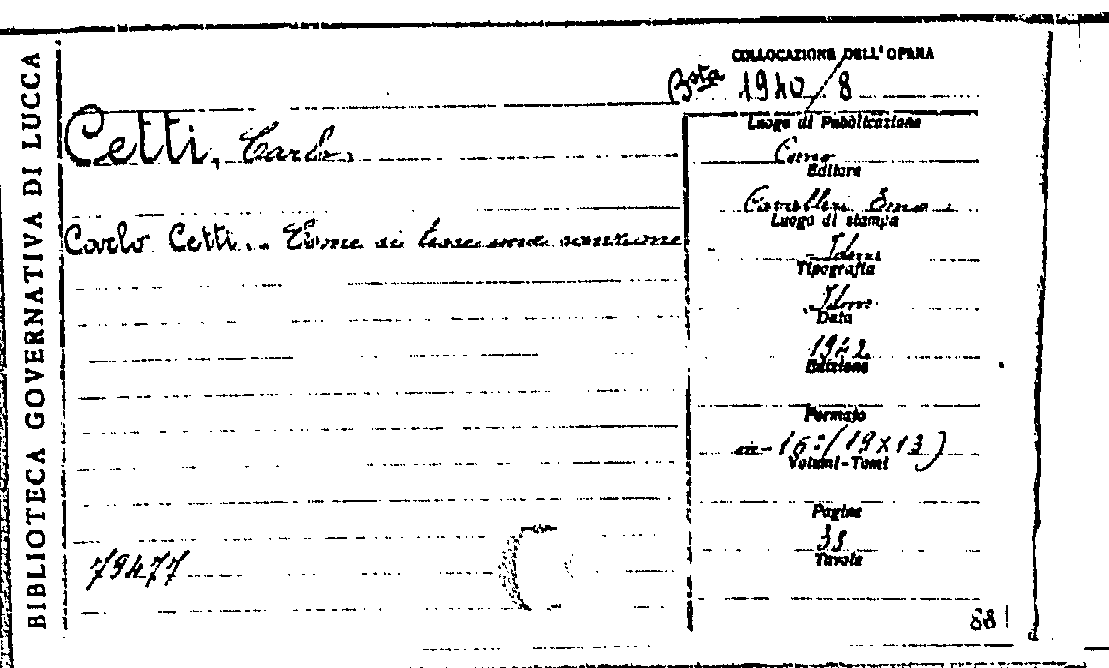 BIBLIOTECA GOVERNATIVA DI LUCCA
COLLOCAZIONE DELL'OPERA
Bsta 1940/8
Cetti, Carlo
Luogo di Pubblicazione
Como
Editore
Emo
Carlo Cetti.. Come si
Luogo di stampa
Idem
Tipografia
Idem
Data
1942
Edizione
Formato
in-16°(19x13)
Volumi-Tomi
Pagine
Tavole
79477
881